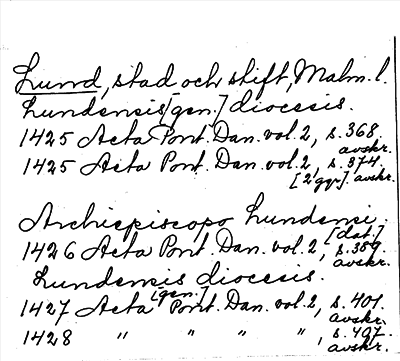 Lund, stad och stift, Malm. l.
Lundensis [gen.] diocesis.
1425 Acta Pont. Dan. vol. 2, s. 368. avskr.
1425 Acta Pont. Dan. vol. 2, s. 374. [2 ggr]. avskr.
Archiepiscopo Lundensi. [dat.]
1426 Acta Pont. Dan. vol. 2, s. 389. avskr.
Lundensis [gen.] diocesis.
1427 Acta Pont. Dan. vol. 2, s. 401. avskr.
1428 " " " " , s. 407. avskr.